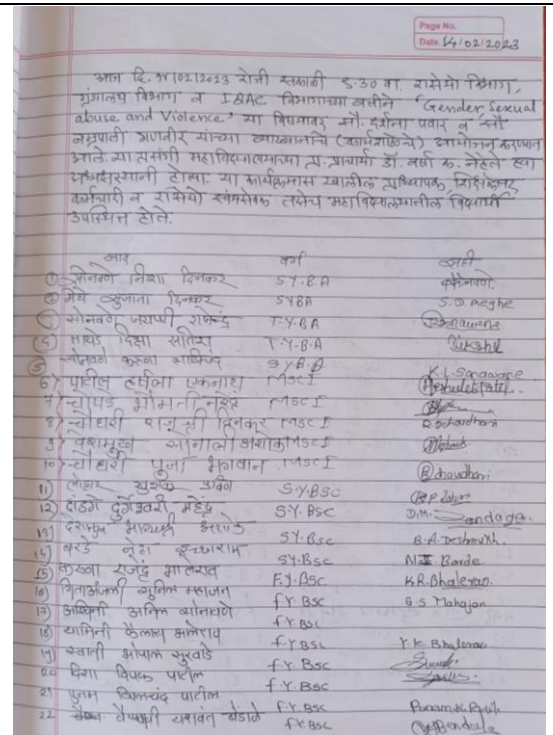 Page No.
Date. 14/02/2023
आज दि. 14/02/2023 रोजी सकाळी 8.30 वा. रासेयो विभाग,
ग्रंथालय विभाग व IQAC विभागाच्या वतीने "Gender, Sexual
abuse and Violence" या विषयावर सौ. दर्शना पवार व सौ
यांच्या व्याख्यानाचे (कार्यशाळेचे) आयोजन करण्यात
आले. या प्रसंगी महाविद्यालयाच्या प्र. प्राचार्या डॉ. वर्षा क. नेहते ह्या
अध्यक्षस्थानी होत्या. या कार्यक्रमास खालील प्राध्यापक, शिक्षकेतर
कर्मचारी व रासेयो स्वयंसेवक तसेच महाविद्यालयातील विद्यार्थी
उपस्थित होते.
नाव वर्ग सही
1) सोनवणे निशा दिनकर S.Y.B.A
2) मेघे सुजाता दिनकर SYBA S.D.meghe
3) सोनवणे राजेंद्र T.Y.B.A
4) दिक्षा सतिश T.Y.B.A Dikshe
5) सोनवणे करुणा S.Y.B.A K.L.Sonawane
6) पाटील हर्षला एकनाथ MSc I
7) चोपडे MSc I
8) चौधरी दिनकर MSc I
9) देशमुख सोनाली अशोक MSc I
10) चौधरी पुजा भगवान MSc I
11) लोहार S.Y.BSC
12) दांडगे दुर्गेश्वरी महेंद्र S.Y.BSC D.M. Dandage
13) देशमुख भाग्यश्री अशोक S.Y.BSC B.A. Deshmukh.
14) बरडे इच्छाराम S.Y.BSC N.I. Barde.
15) करुणा राजेंद्र भालेराव F.Y.BSC K.R.Bhalerao.
16) गितांजली सुनिल महाजन F.Y.BSC G.S Mahajan
17) अश्विनी अनिल सोनवणे F.Y.BSC
18) यामिनी कैलास भालेराव F.Y.BSC Y.K. Bhalerao
19) स्वाती भोपाल सुरवाडे F.Y.BSC
20 दिशा दिपक पाटील F.Y.BSC
21 पुनम पाटील F.Y.BSC
22 वैष्णवी यशवंत बेंडाळे F.Y.BSC